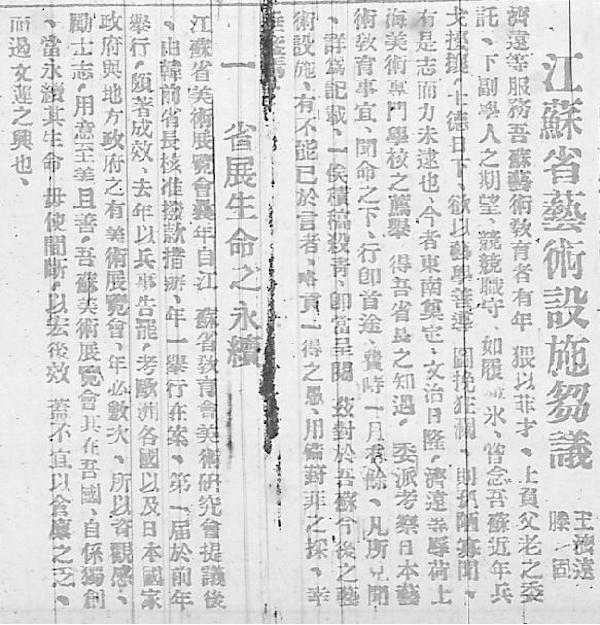 江蘇省藝術設施芻議
王濟遠
滕 固
濟遠等服務吾蘇藝術敎育者有年 猥以菲才、上負父老之委
託、下副學人之期望、兢兢職守、如履 氷、嘗念吾蘇近年兵
戈擾攘、 德日下、欲以藝學善 圖挽狂瀾 則孤陋寡聞、
有是志而力未逮也、今者東南奠定、文治日隆、濟遠 辱荷上
海美術專門學校之薦舉 得吾省長之知遇、委派考察日本藝
術敎育事宜、聞命之下、行卽首途、費時一月有餘、凡所見聞
、詳爲記載、一俟積稿殺靑、卽當呈閱 玆對於吾蘇今後之藝
術設施、有不能已於言者、略貢一得之愚、用備葑菲之採、幸
垂鑒焉
一 省展生命之永續
江蘇省美術展覽會曩年自江 蘇省敎育會美術研究會提議後
、由韓前省長核准撥款措辦、年一舉行在案、第一屆於前年
舉行、頗著成效、去年以兵事告罷、考歐洲各國以及日本國家
政府與地方政府之有美術展覽會、年必數次、所以育觀感、
勵士志、用意至美且善、吾蘇美術展覽會其在吾國、自係獨創
、當永續其生命 毋使間斷、以宏後效 蓋不宜以倉廩之乏、
而遏文運之興也、